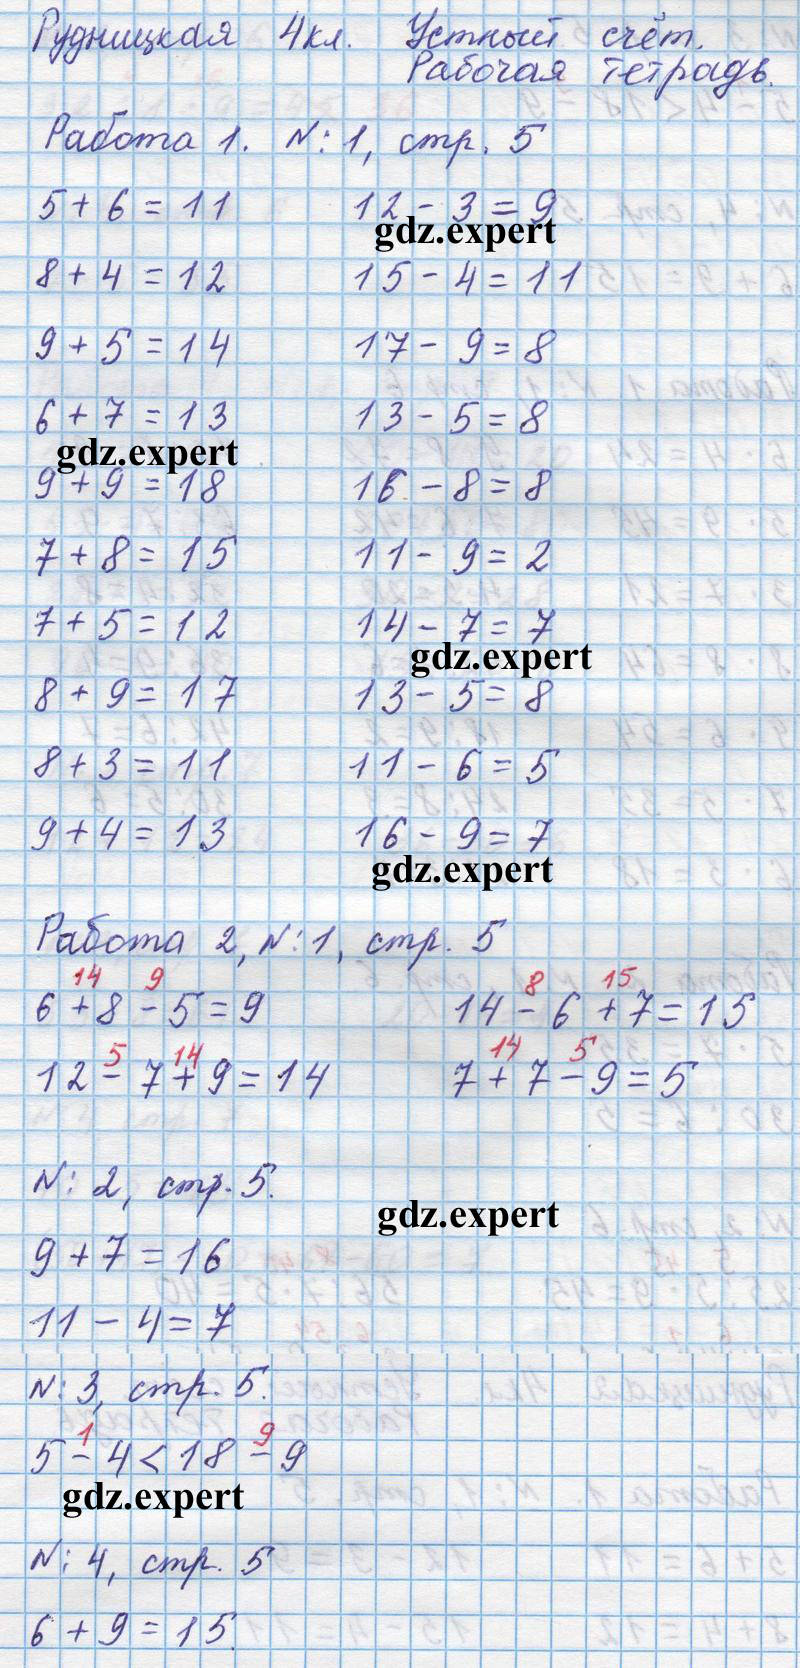 Рудницкая 4кл. Устный счёт.
Рабочая тетрадь.
Работа 1. N: 1, стр. 5
5 + 6 = 11 12 - 3 = 9
gdz.expert
8 + 4 = 12 15 - 4 = 11
9 + 5 = 14 17 - 9 = 8
6 + 7 = 13 13 - 5 = 8
gdz.expert
9 + 9 = 18 16 - 8 = 8
7 + 8 = 15 11 - 9 = 2
7 + 5 = 12 14 - 7 = 7
gdz.expert
8 + 9 = 17 13 - 5 = 8
8 + 3 = 11 11 - 6 = 5
9 + 4 = 13 16 - 9 = 7
gdz.expert
Работа 2, N: 1, стр. 5
14 9 8 15
6 + 8 - 5 = 9 14 - 6 + 7 = 15
5 14 14 5
12 - 7 + 9 = 14 7 + 7 - 9 = 5
N: 2, стр. 5.
gdz.expert
9 + 7 = 16
11 - 4 = 7
N: 3, стр. 5.
1 9
5 - 4 < 18 - 9
gdz.expert
N: 4, стр. 5
6 + 9 = 15